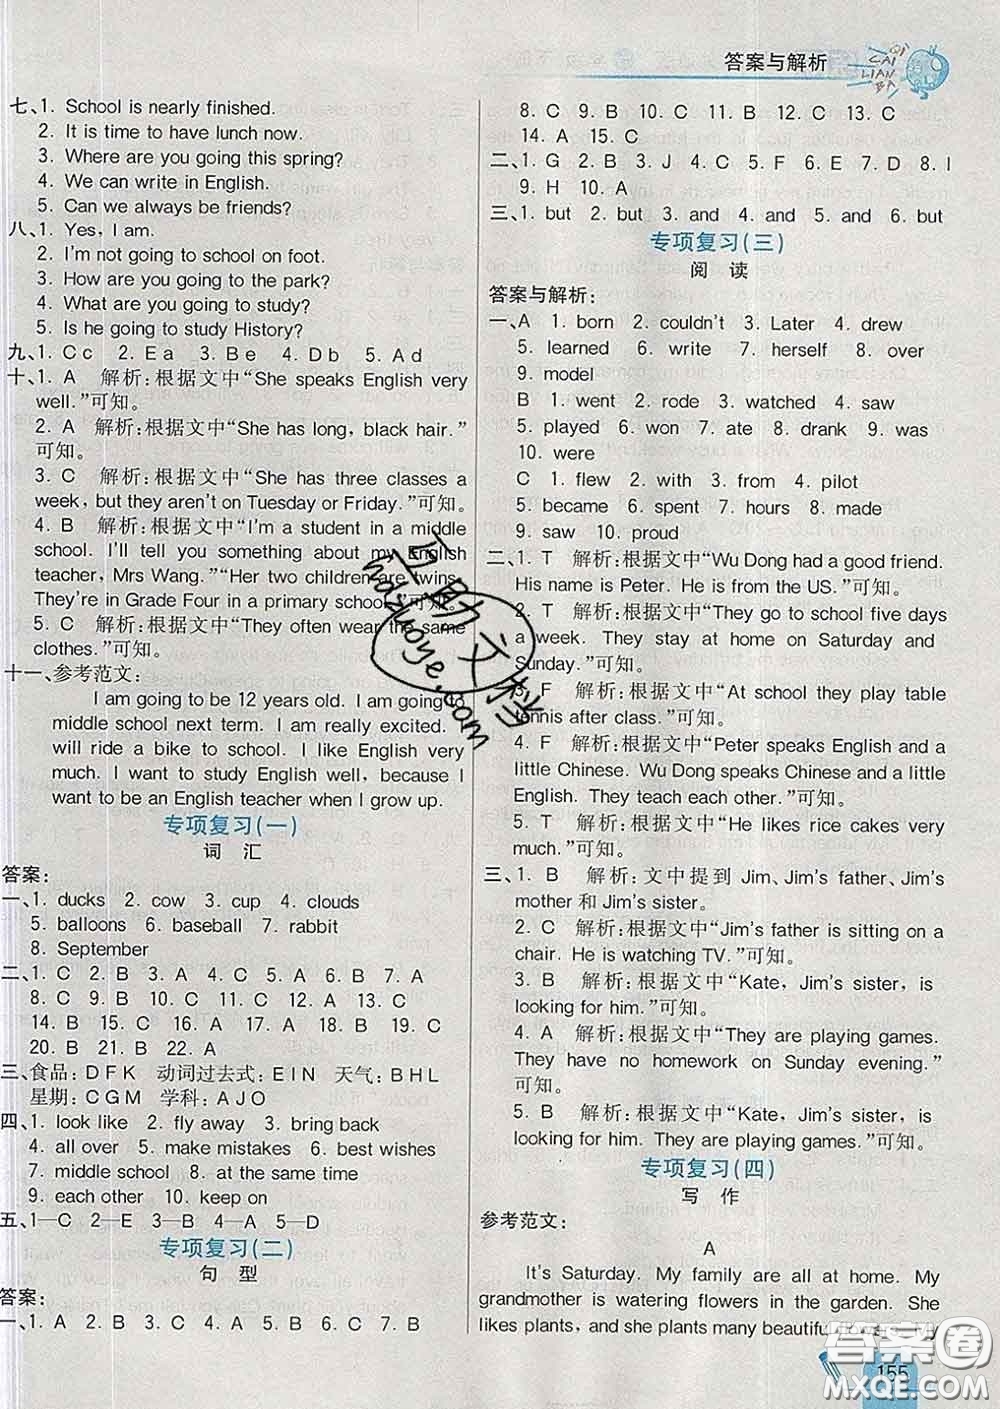 答案与解析
QI CAI LIAN BA
七、1. School is nearly finished.
2. It is time to have lunch now.
3. Where are you going this spring?
4. We can write in English.
5. Can we always be friends?
八、1. Yes, I am.
2. I'm not going to school on foot.
3. How are you going to the park?
4. What are you going to study?
5. Is he going to study History?
九、1. C c 2. E a 3. B e 4. D b 5. A d
十、1. A 解析:根据文中“She speaks English very
well.”可知。
2. A 解析:根据文中“She has long, black hair.”
可知。
3. C 解析:根据文中“She has three classes a
week, but they aren't on Tuesday or Friday.”可知。
4. B 解析:根据文中“I'm a student in a middle
school. I'll tell you something about my English
teacher, Mrs Wang.”“Her two children are twins.
They're in Grade Four in a primary school.”可知。
5. C 解析:根据文中“They often wear the same
clothes.”可知。
十一、参考范文:
I am going to be 12 years old. I am going to
middle school next term. I am really excited. I
will ride a bike to school. I like English very
much. I want to study English well, because I
want to be an English teacher when I grow up.
专项复习(一)
词 汇
答案:
一、1. ducks 2. cow 3. cup 4. clouds
5. balloons 6. baseball 7. rabbit
8. September
二、1. C 2. B 3. A 4. C 5. A 6. B 7. A
8. C 9. C 10. A 11. C 12. A 13. C
14. B 15. C 16. A 17. C 18. B 19. C
20. B 21. B 22. A
三、食品:D F K 动词过去式:E I N 天气:B H L
星期:C G M 学科:A J O
四、1. look like 2. fly away 3. bring back
4. all over 5. make mistakes 6. best wishes
7. middle school 8. at the same time
9. each other 10. keep on
五、1—C 2—E 3—B 4—A 5—D
专项复习(二)
句 型
答案:
一、1. A 2. B 3. C 4. A 5. B 6. C 7. B
8. C 9. B 10. C 11. B 12. C 13. B
14. A 15. C
二、1. G 2. B 3. J 4. C 5. F 6. E 7. D 8. I
9. H 10. A
三、1. but 2. but 3. and 4. and 5. and 6. but
专项复习(三)
阅 读
答案与解析:
一、A 1. born 2. couldn't 3. Later 4. drew
5. learned 6. write 7. herself 8. over
9. model
B 1. went 2. rode 3. watched 4. saw
5. played 6. won 7. ate 8. drank 9. was
10. were
C 1. flew 2. with 3. from 4. pilot
5. became 6. spent 7. hours 8. made
9. saw 10. proud
二、1. T 解析:根据文中“Wu Dong had a good friend.
His name is Peter. He is from the US.”可知。
2. T 解析:根据文中“They go to school five days
a week. They stay at home on Saturday and
Sunday.”可知。
3. F 解析:根据文中“At school they play table
tennis after class.”可知。
4. F 解析:根据文中“Peter speaks English and a
little Chinese. Wu Dong speaks Chinese and a little
English. They teach each other.”可知。
5. T 解析:根据文中“He likes rice cakes very
much.”可知。
三、1. B 解析:文中提到 Jim、Jim's father、Jim's
mother 和 Jim's sister。
2. C 解析:根据文中“Jim's father is sitting on a
chair. He is watching TV.”可知。
3. B 解析:根据文中“Kate, Jim's sister, is
looking for him.”可知。
4. A 解析:根据文中“They are playing games.
They have no homework on Sunday evening.”
可知。
5. B 解析:根据文中“Kate, Jim's sister, is
looking for him. They are playing games.”可知。
专项复习(四)
写 作
参考范文:
A
It's Saturday. My family are all at home. My
grandmother is watering flowers in the garden. She
likes plants, and she plants many beautiful
155
答案圈
MXQE.COM
互助文档
hdzuoye.com